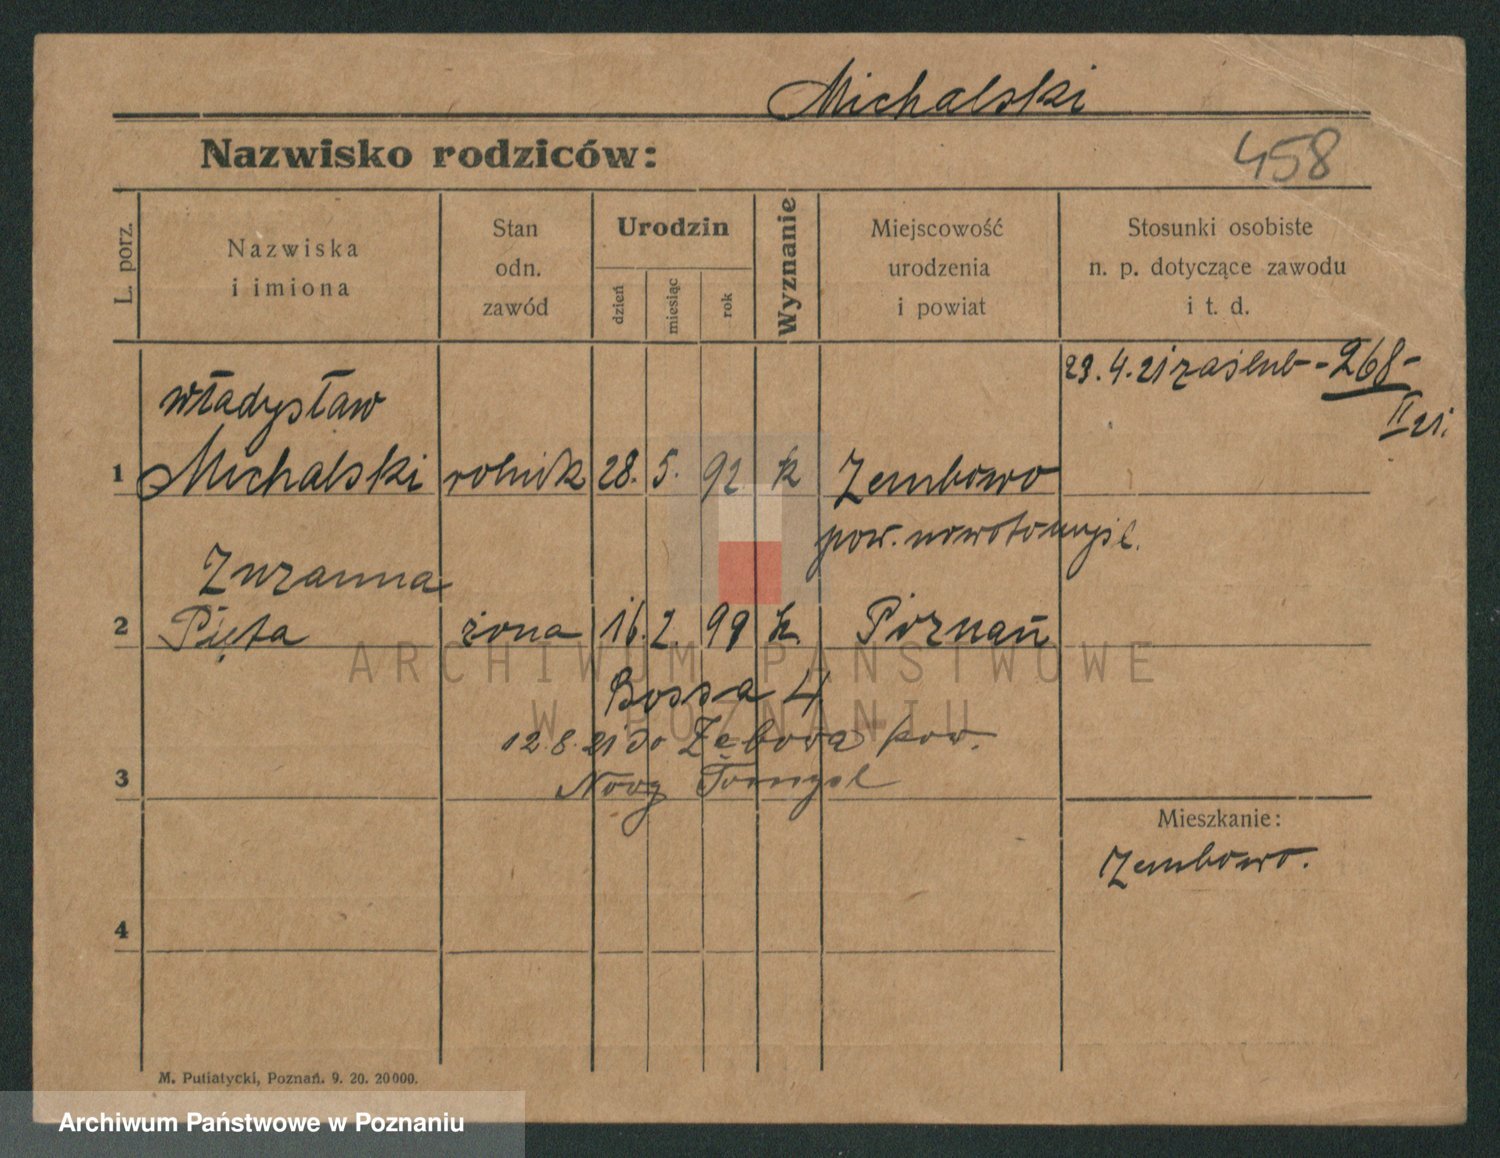 Michalski
Nazwisko rodziców:
458
L. porz.
Nazwiska
i imiona
Stan
odn.
zawód
Urodzin
dzień
miesiąc
rok
Wyznanie
Miejscowość
urodzenia
i powiat
Stosunki osobiste
n. p. dotyczące zawodu
i t. d.
23.4.21 zaślub - 268 -
II 21.
Władysław
1 Michalski rolnik 28. 5. 92 k Zembowo
pow. nowotomysl.
Zuzanna
2 Pięta żona 16. 2. 99 k. Poznań
ARCHIWUM PAŃSTWOWE
W POZNANIU
Bossa 4
12.8.21 do Zębowa pow.
3 Nowy Tomysl
Mieszkanie:
Zembowo.
4
M. Putiatycki, Poznań. 9. 20. 20000.
Archiwum Państwowe w Poznaniu